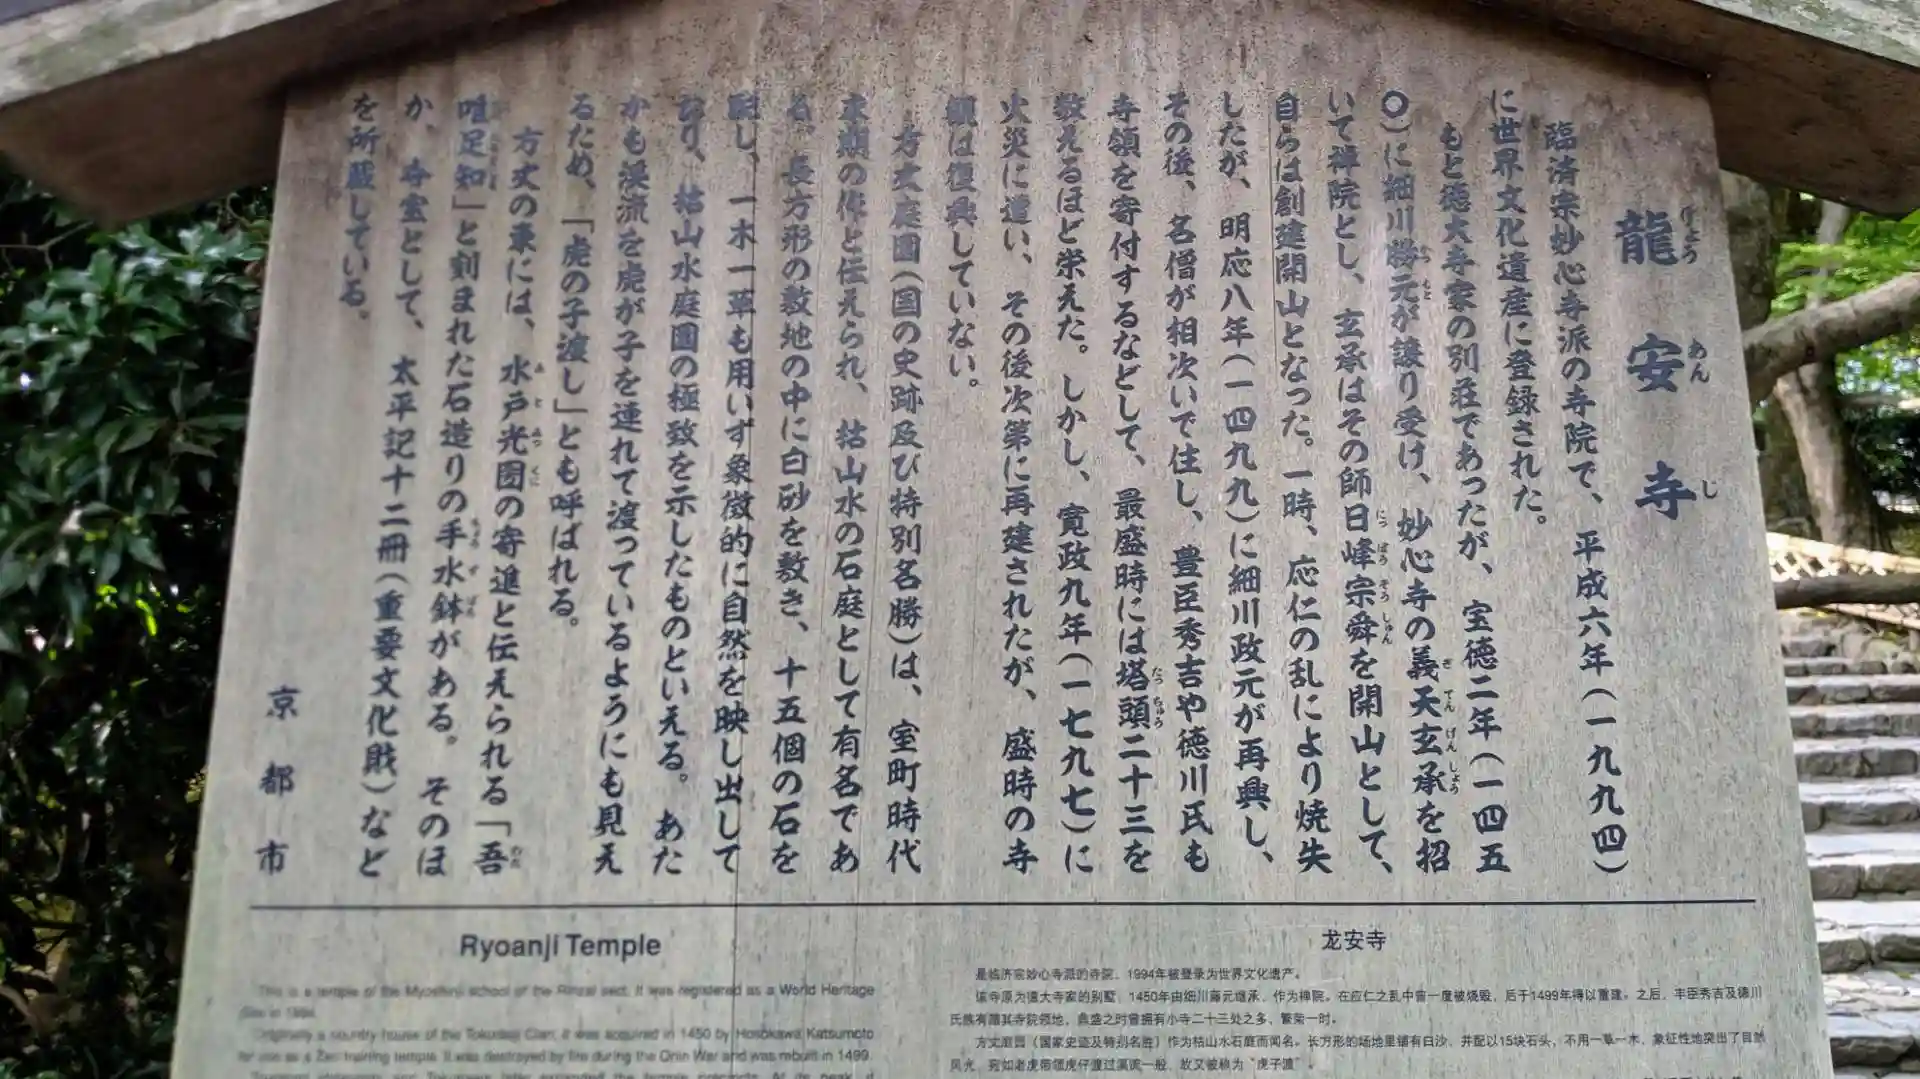 龍安寺
りょうあんじ
臨済宗妙心寺派の寺院で、平成六年(一九九四)
に世界文化遺産に登録された。
もと徳大寺家の別荘であったが、宝徳二年(一四五
〇)に細川勝元が譲り受け、妙心寺の義天玄承を招
いて禅院とし、玄承はその師日峰宗舜を開山として、
自らは創建開山となった。一時、応仁の乱により焼失
したが、明応八年(一四九九)に細川政元が再興し、
その後、名僧が相次いで住し、豊臣秀吉や徳川氏も
寺領を寄付するなどして、最盛時には塔頭二十三を
数えるほど栄えた。しかし、寛政九年(一七九七)に
火災に遭い、その後次第に再建されたが、盛時の寺
観は復興していない。
方丈庭園(国の史跡及び特別名勝)は、室町時代
末期の作と伝えられ、枯山水の石庭として有名であ
る。長方形の敷地の中に白砂を敷き、十五個の石を
配し、一木一草も用いず象徴的に自然を映し出して
おり、枯山水庭園の極致を示したものといえる。あた
かも渓流を虎が子を連れて渡っているようにも見え
るため、「虎の子渡し」とも呼ばれる。
方丈の東には、水戸光圀の寄進と伝えられる「吾
唯足知」と刻まれた石造りの手水鉢がある。そのほ
か、寺宝として、太平記十二冊(重要文化財)など
を所蔵している。
京都市
Ryoanji Temple
This is a temple of the Myoshinji school of the Rinzai sect. It was registered as a World Heritage
Site in 1994.
Originally a country house of the Tokudaiji Clan, it was acquired in 1450 by Hosokawa Katsumoto
for use as a Zen training temple. It was destroyed by fire during the Onin War and was rebuilt in 1499.
龙安寺
是临济宗妙心寺派的寺院，1994年被登录为世界文化遗产。
该寺原为德大寺家的别墅，1450年由细川藤元继承，作为禅院。在应仁之乱中曾一度被烧毁，后于1499年得以重建。之后，丰臣秀吉及德川
氏族有赠其寺院领地，鼎盛之时曾拥有小寺二十三处之多，繁荣一时。
方丈庭园（国家史迹及特别名胜）作为枯山水石庭而闻名。长方形的场地里铺有白沙，并配以15块石头，不用一草一木，象征性地突出了自然
风光，宛如老虎带领虎仔渡过溪流一般，故又被称为“虎子渡”。